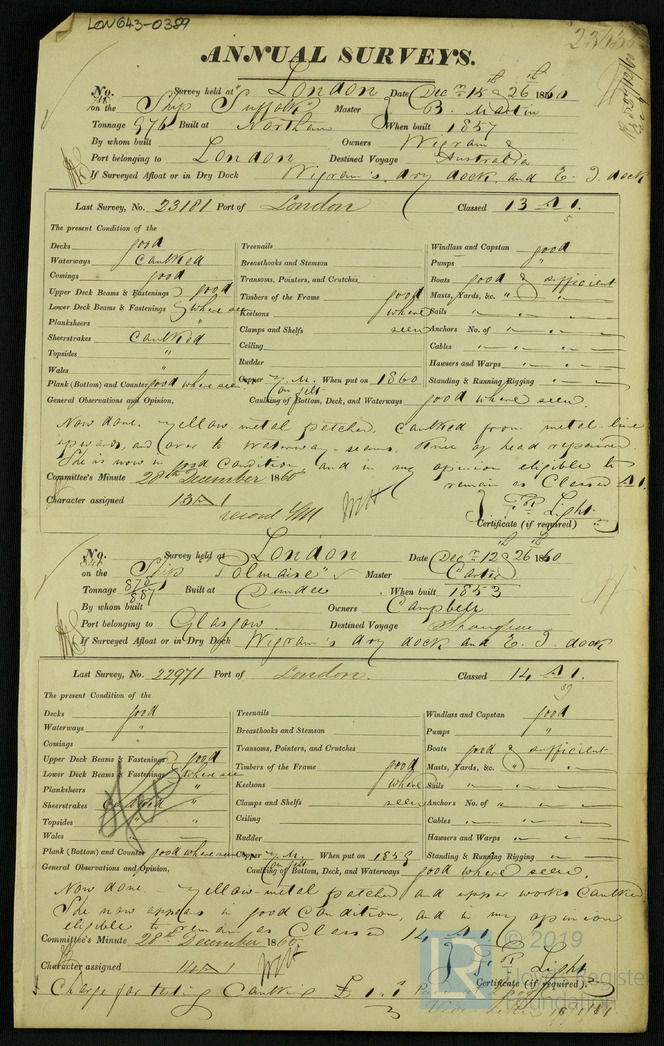 LON643-0389
ANNUAL SURVEYS.
No. Survey held at London Date Decr 15th & 26th 1860
on the Ship Suffolk Master B. Martin
Tonnage 976 Built at Northam When built 1857
By whom built Owners Wigram &
Port belonging to London Destined Voyage Australia
If Surveyed Afloat or in Dry Dock Wigram's dry dock and E. I. dock
Last Survey, No. 23181 Port of London Classed 13 A 1.
The present Condition of the
Decks good Treenails Windlass and Capstan good
Waterways Caulked Breasthooks and Stemson Pumps "
Comings good Transoms, Pointers, and Crutches Boats good & sufficient
Upper Deck Beams & Fastenings good Timbers of the Frame good Masts, Yards, &c. " "
Lower Deck Beams & Fastenings where seen Keelsons where Sails " "
Planksheers " Clamps and Shelfs seen Anchors No. of " "
Sheerstrakes Caulked Ceiling Cables " "
Topsides " Rudder Hawsers and Warps " "
Wales " Copper Y.M. on felt When put on 1860 Standing & Running Rigging " "
Plank (Bottom) and Counter good where seen
General Observations and Opinion, Caulking of Bottom, Deck, and Waterways good where seen.
Now done. Yellow metal patched. Caulked from metal line
upwards and over to Waterway seams. Knee of head repaired.
She is now in good Condition and in my opinion eligible to
remain as Classed A 1.
Committee's Minute 28th December 1860
Character assigned 13 A 1
record YM
J. R. Light
Certificate (if required)
No. Survey held at London Date Decr 12th & 26th 1860
on the Ship "Polmaise" Master Carter
Tonnage 878/887 Built at Dundee When built 1853
By whom built Owners Campbell
Port belonging to Glasgow Destined Voyage Shanghae
If Surveyed Afloat or in Dry Dock Wigram's dry dock and E. I. dock
Last Survey, No. 22971 Port of London. Classed 14 A 1.
59
The present Condition of the
Decks good Treenails Windlass and Capstan good
Waterways " Breasthooks and Stemson Pumps "
Comings " Transoms, Pointers, and Crutches Boats good & sufficient
Upper Deck Beams & Fastenings good Timbers of the Frame good Masts, Yards, &c. " "
Lower Deck Beams & Fastenings where seen Keelsons where Sails " "
Planksheers " Clamps and Shelfs seen Anchors No. of " "
Sheerstrakes " Ceiling Cables " "
Topsides " Rudder Hawsers and Warps " "
Wales " Copper Y.M. on felt When put on 1859 Standing & Running Rigging " "
Plank (Bottom) and Counter good where seen
General Observations and Opinion, Caulking of Bottom, Deck, and Waterways good where seen.
Now done. Yellow metal patched and upper works Caulked.
She now appears in good Condition, and in my opinion
eligible to remain as Classed 14 A 1.
Committee's Minute 28th December 1860
Character assigned 14 A 1
J. R. Light
Certificate (if required).
Charge for testing Caulking £1.1.
© 2019
Lloyd's Register
Foundation